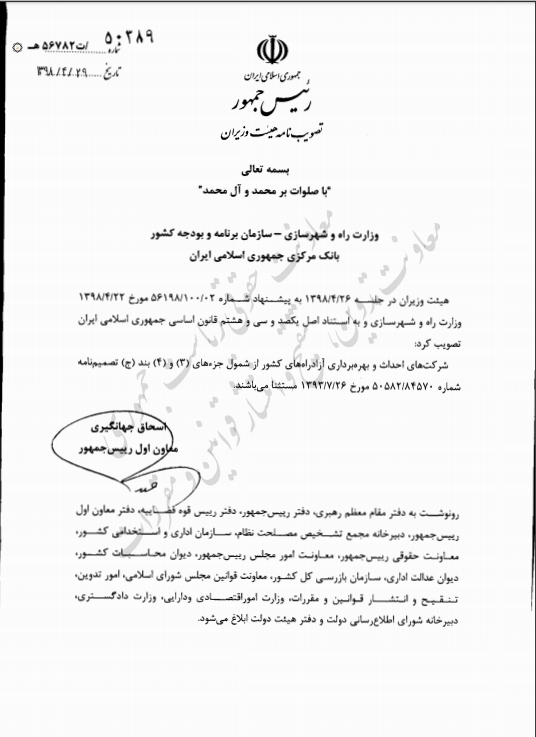 شماره ۵۰۲۸۹/ت۵۶۷۸۲هـ
تاریخ ۱۳۹۸/۴/۲۹
جمهوری اسلامی ایران
رئیس جمهور
تصویب نامه هیئت وزیران
بسمه تعالی
"با صلوات بر محمد و آل محمد"
وزارت راه و شهرسازی – سازمان برنامه و بودجه کشور
بانک مرکزی جمهوری اسلامی ایران
هیئت وزیران در جلسه ۱۳۹۸/۴/۲۶ به پیشنهاد شماره ۵۶۱۹۸/۱۰۰/۰۲ مورخ ۱۳۹۸/۴/۲۲
وزارت راه و شهرسازی و به استناد اصل یکصد و سی و هشتم قانون اساسی جمهوری اسلامی ایران
تصویب کرد:
شرکت‌های احداث و بهره‌برداری آزادراه‌های کشور از شمول جزءهای (۳) و (۴) بند (ج) تصمیم‌نامه
شماره ۵۰۵۸۲/۸۴۵۷۰ مورخ ۱۳۹۳/۷/۲۶ مستثنا می‌باشند.
اسحاق جهانگیری
معاون اول رییس‌جمهور
رونوشت به دفتر مقام معظم رهبری، دفتر رییس‌جمهور، دفتر رییس قوه قضاییه، دفتر معاون اول
رییس‌جمهور، دبیرخانه مجمع تشخیص مصلحت نظام، سازمان اداری و استخدامی کشور،
معاونت حقوقی رییس‌جمهور، معاونت امور مجلس رییس‌جمهور، دیوان محاسبات کشور،
دیوان عدالت اداری، سازمان بازرسی کل کشور، معاونت قوانین مجلس شورای اسلامی، امور تدوین،
تنقیح و انتشار قوانین و مقررات، وزارت اموراقتصادی ودارایی، وزارت دادگستری،
دبیرخانه شورای اطلاع‌رسانی دولت و دفتر هیئت دولت ابلاغ می‌شود.
معاونت حقوقی ریاست جمهوری
معاونت تدوین، تنقیح و انتشار قوانین و مقررات